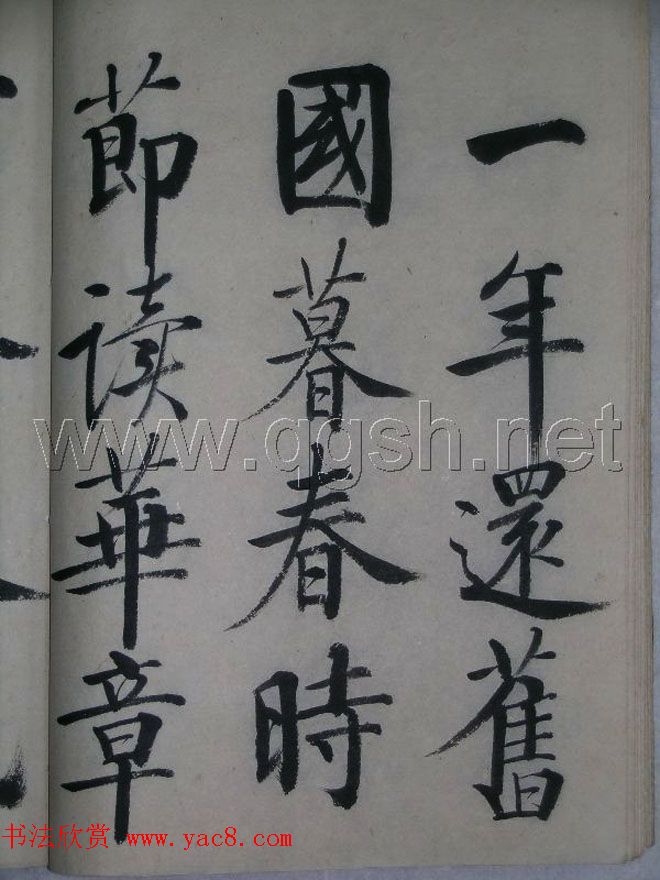 一年還舊
國暮春時
節读華章
www.qgsh.net
书法欣赏 www.yac8.com